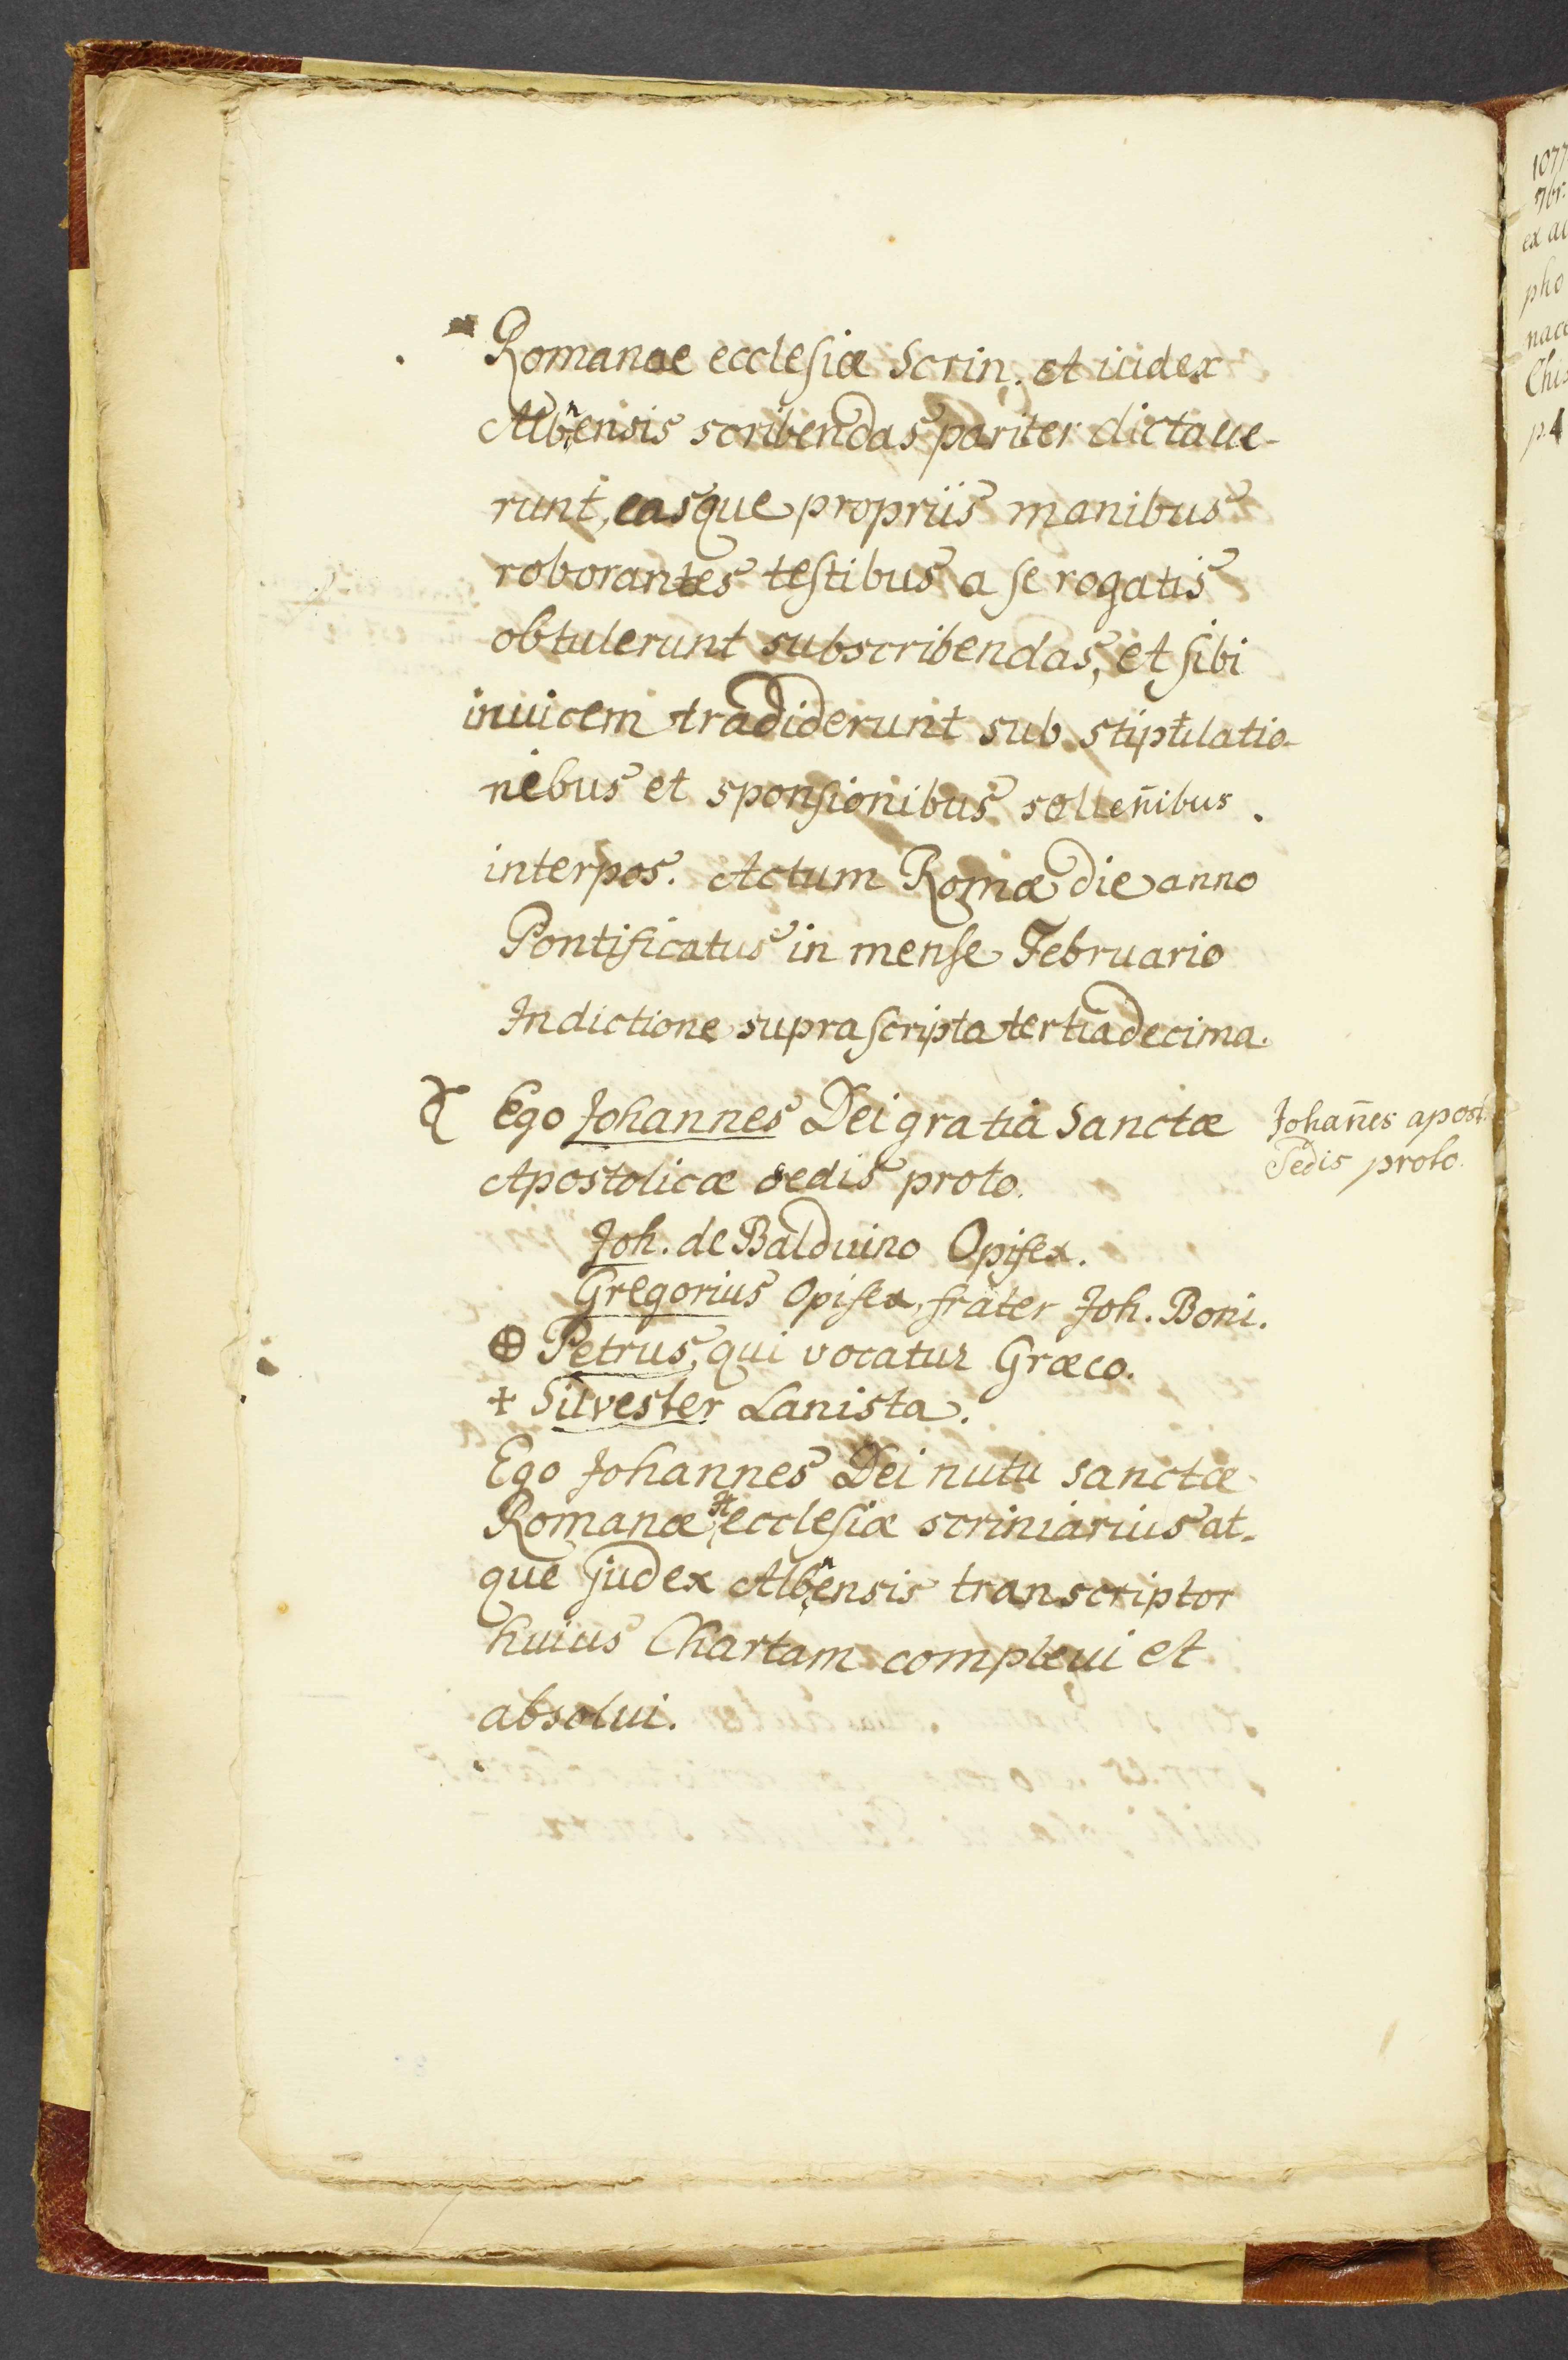 Romanae ecclesiæ Scrin. et iudex
Albnensis scribendas pariter dictaue-
runt, easque propriis manibus
roborantes testibus a se rogatis
obtulerunt subscribendas, et sibi
inuicem tradiderunt sub stipulatio-
nibus et sponsionibus sollen̄ibus
interpos. Actum Romæ die anno
Pontificatus in mense Februario
Indictione suprascripta tertiadecima.
Ego Johannes Dei gratia Sanctæ
Apostolicæ sedis proto.
Johan̄es apost.
Sedis proto.
Joh. de Balduino Opifex.
Gregorius Opifex, frater Joh. Boni.
⊕ Petrus, qui vocatur Græco.
+ Silvester Lanista.
Ego Johannes Dei nutu sanctæ
Romanæ ecclesiæ scriniarius at-
que judex Albnensis transcriptor
huius Chartam compleui et
absolui.
1077
7br:
ex au
pho
nacc
Chis
p. 4